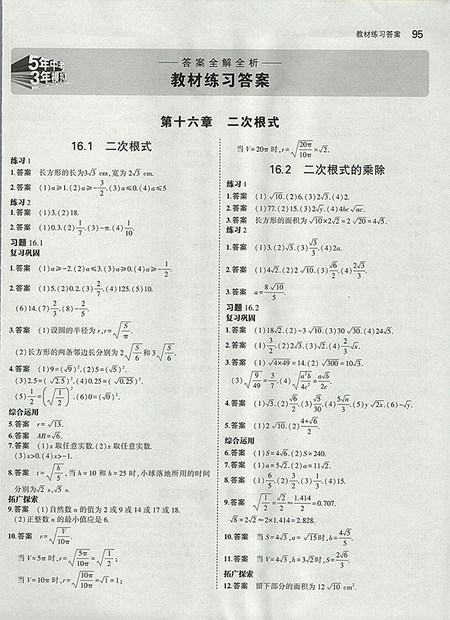 教材练习答案 95
5年中考
3年模拟
答案全解全析
教材练习答案
第十六章 二次根式
16.1 二次根式
练习 1
1.答案 长方形的长为3√3 cm,宽为2√3 cm.
2.答案 (1)a≥1.(2)a≥-3/2.(3)a≤0.(4)a≤5
练习 2
1.答案 (1)3.(2)18.
2.答案 (1)0.3.(2)1/7.(3)-π.(4)1/10
习题 16.1
复习巩固
1.答案 (1)a≥-2.(2)a≤3.(3)a≥0.(4)a≥-1/2.
2.答案 (1)5.(2)0.2.(3)2/7.(4)125.(5)10.
(6)14.(7)2/3.(8)-2/5.
3.答案 (1)设圆的半径为r,r=√(S/π).
(2)长方形的两条邻边长分别为2√(S/6)和3√(S/6).
4.答案 (1)9=(√9)².(2)5=(√5)².
(3)2.5=(√2.5)².(4)0.25=(√0.25)².
(5)1/2=(√(1/2))².(6)0=(√0)².
综合运用
5.答案 r=√13.
6.答案 AB=√6.
7.答案 (1)x取任意实数.(2)x取任意实数.
(3)x>0.(4)x>-1.
8.答案 t=√(h/5).当h=10和h=25时,小球落地所用的时间
分别为√2 s,√5 s.
拓广探索
9.答案 (1)自然数n的值为2或9或14或17或18.
(2)正整数n的最小值应是6.
10.答案 r=√(V/10π).
当V=5π时,r=√(5π/10π)=√(1/2);
当V=10π时,r=√(10π/10π)=√1=1;
当V=20π时,r=√(20π/10π)=√2.
16.2 二次根式的乘除
练习 1
1.答案 (1)√10.(2)6.(3)2√3.(4)2.
2.答案 (1)77.(2)15.(3)2√y.(4)4bc√ac.
3.答案 长方形的面积为√10×2√2=2√20=4√5.
练习 2
1.答案 (1)3.(2)√3.(3)√3/3.(4)2a.
2.答案 (1)4√2.(2)2√10.(3)√6/2.(4)2√3/3.
3.答案 a=8√10/5.
习题 16.2
复习巩固
1.答案 (1)18√2.(2)-3√10.(3)30√30.(4)24√5.
2.答案 (1)3/2.(2)2√3.(3)√2.(4)2/3√x.
3.答案 (1)√4×49=14.(2)√300=10√3.
(3)√(9/49)=3/7.(4)√(a²b/4c²)=a√b/2c.
4.答案 (1)√3.(2)√6/2.(3)√5/30.(4)5√n/3.(5)y√2x.(6)-√y.
5.答案 (1)2√10.(2)4+√6/2.
综合运用
6.答案 (1)S=4√6.(2)S=240.
7.答案 (1)a=5√2.(2)a=11√2.
8.答案 (1)6/5.(2)3/2.(3)1/3.(4)15.
9.答案 √(1/2)=√2/2≈1.414/2=0.707.
√8=2√2≈2×1.414=2.828.
10.答案 当S=4√3,a=√15时,b=4√5/5.
11.答案 当V=4√3,h=3√2时,S=2√6/3.
拓广探索
12.答案 留下部分的面积为12√10 cm².